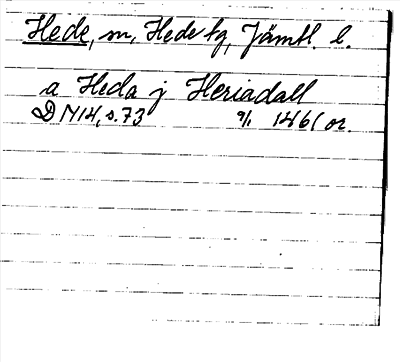 Hede, sn, Hede tg, Jämtl. l.
a Heda j Heriadall
DN14, s.73 9/1 1461 or.